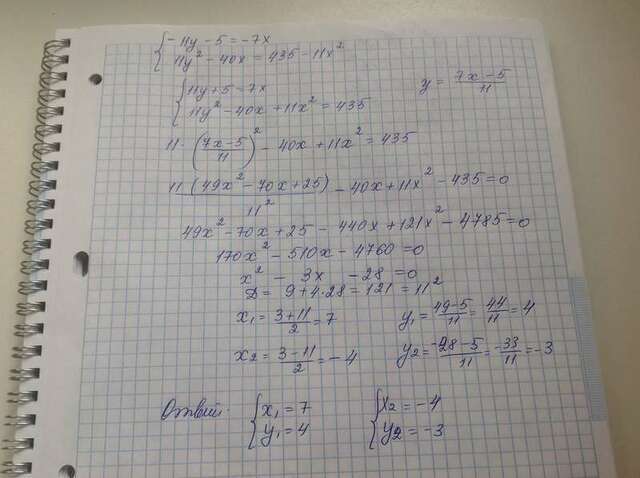 { -11y - 5 = -7x
{ 11y² - 40x = 435 - 11x²
{ 11y + 5 = 7x    y = (7x - 5)/11
{ 11y² - 40x + 11x² = 435
11 · ((7x - 5)/11)² - 40x + 11x² = 435
11 · (49x² - 70x + 25)/11² - 40x + 11x² - 435 = 0
49x² - 70x + 25 - 440x + 121x² - 4785 = 0
170x² - 510x - 4760 = 0
x² - 3x - 28 = 0
D = 9 + 4·28 = 121 = 11²
x₁ = (3 + 11)/2 = 7    y₁ = (49 - 5)/11 = 44/11 = 4
x₂ = (3 - 11)/2 = -4    y₂ = (-28 - 5)/11 = -33/11 = -3
Ответ: { x₁ = 7    { x₂ = -4
{ y₁ = 4    { y₂ = -3